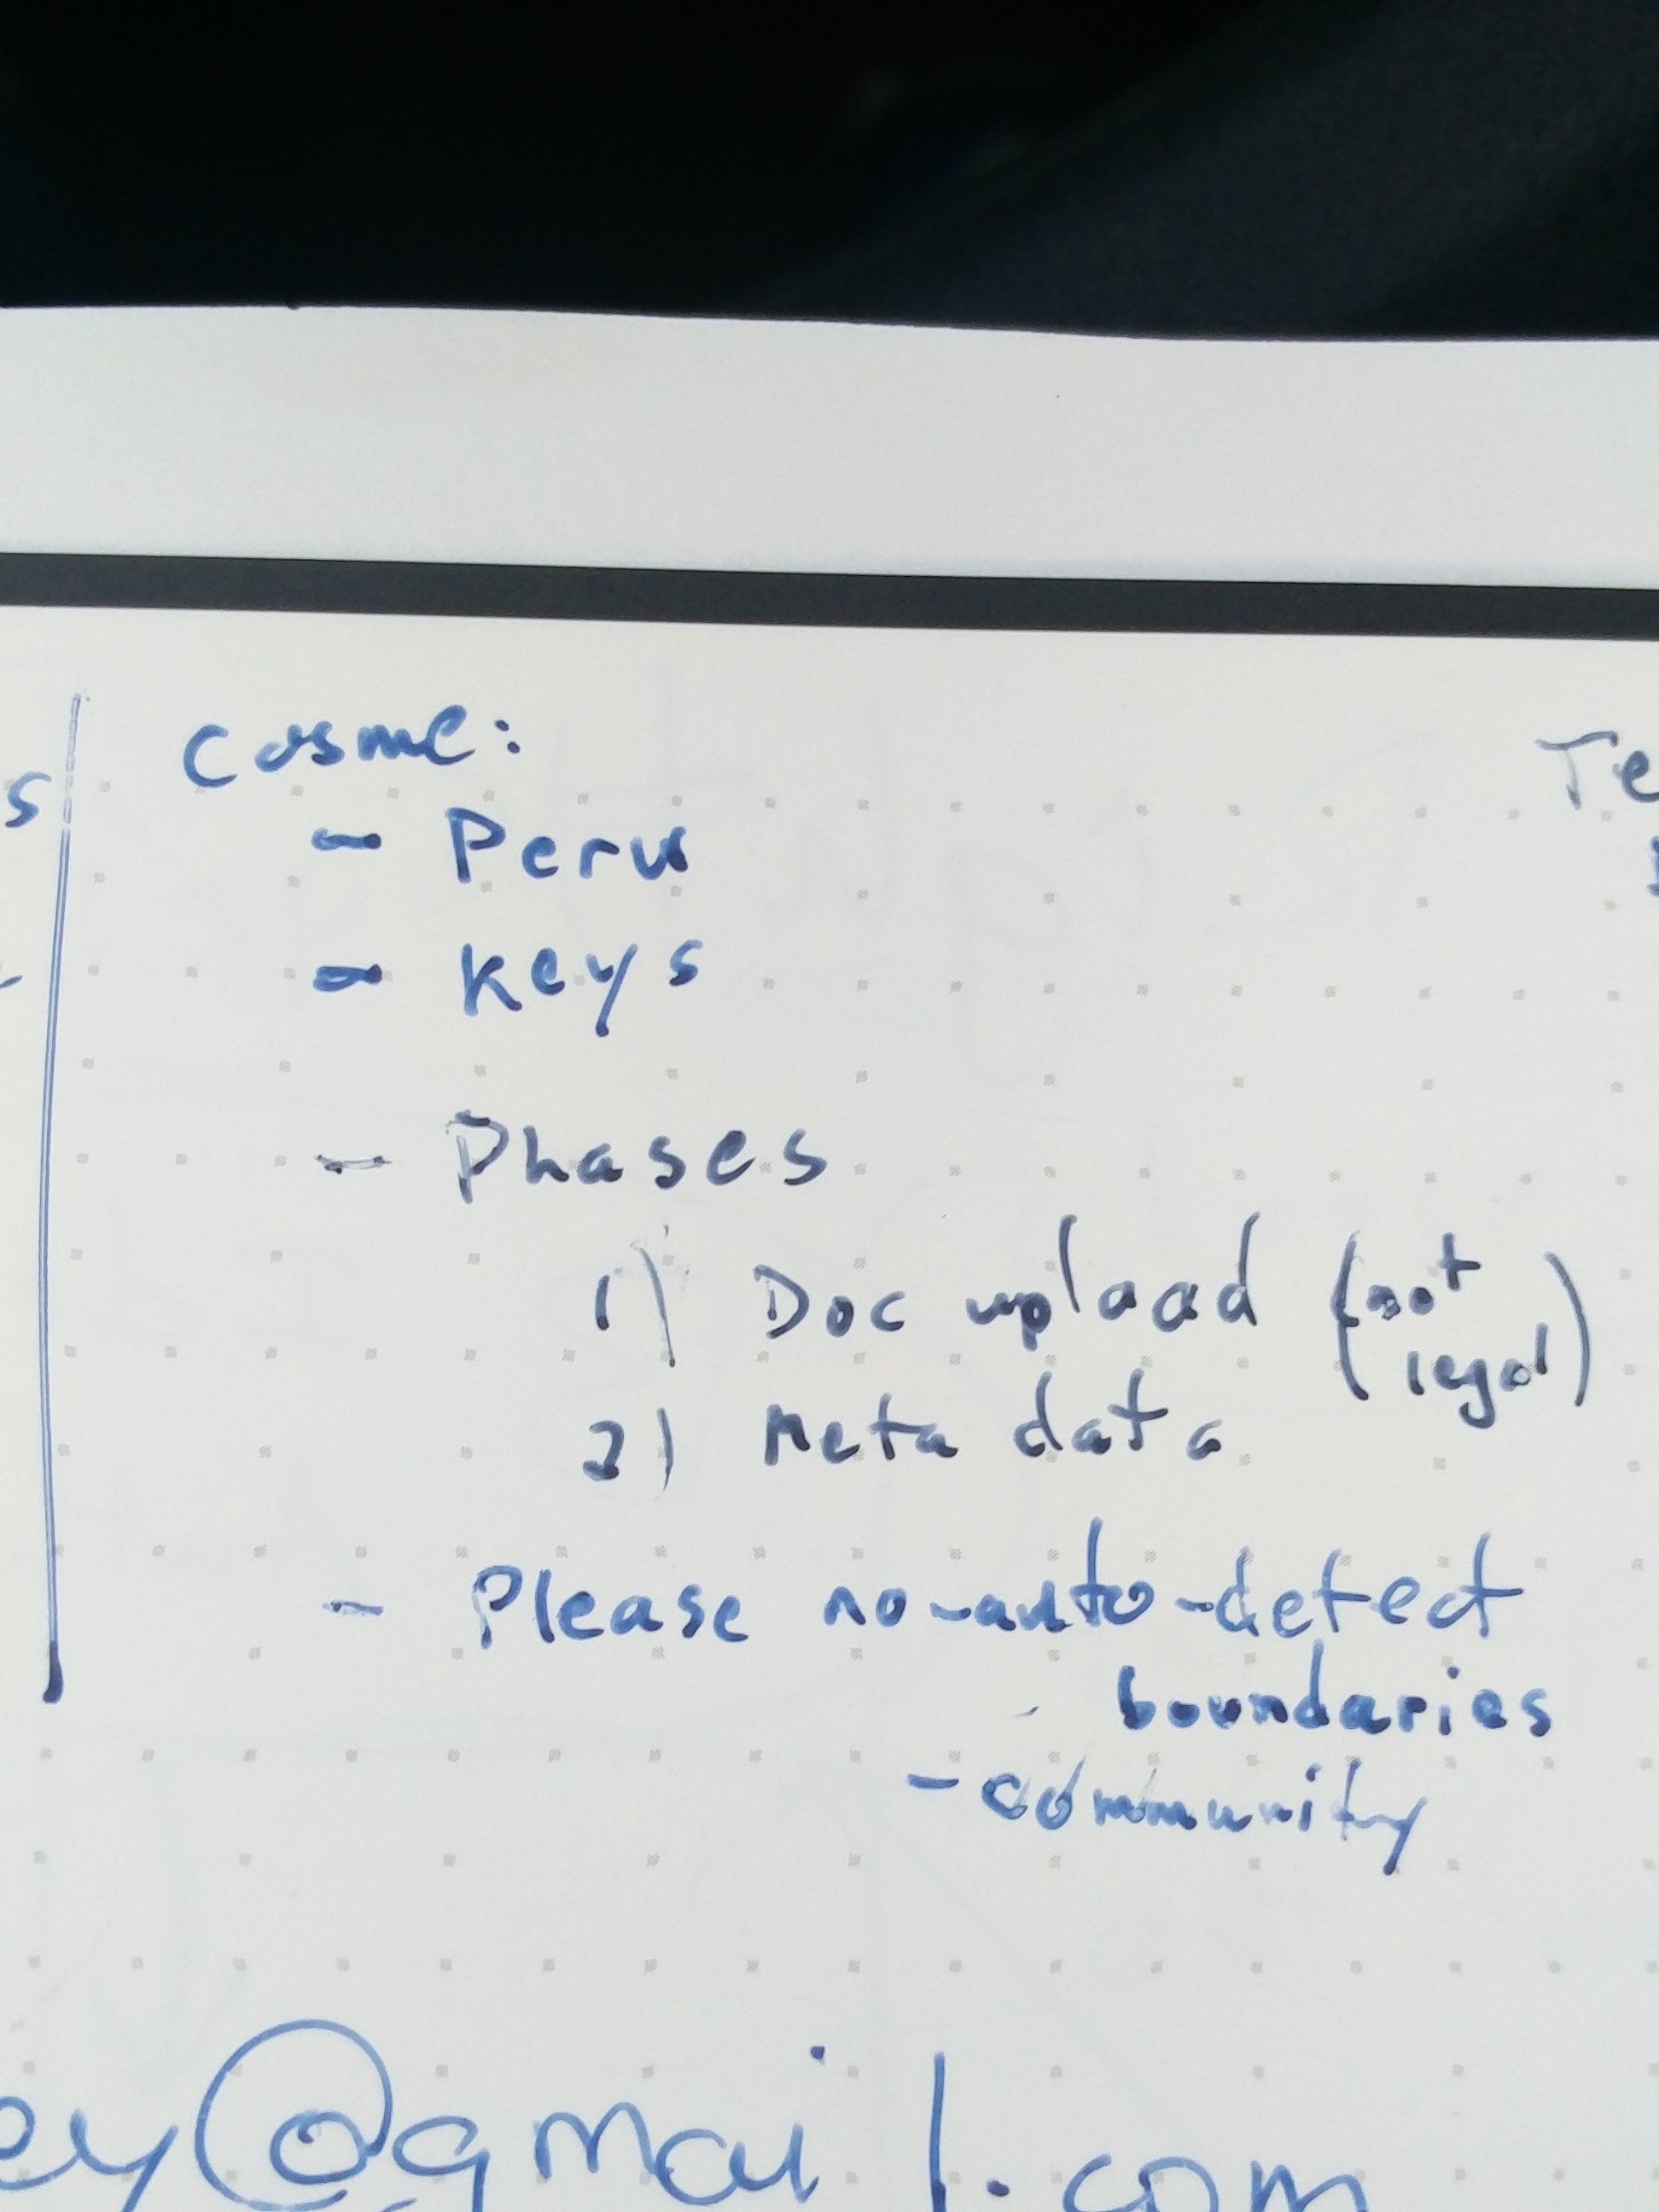 s
Cosme:
Te
- Peru
- Keys
- Phases
1) Doc upload (not legal)
2) Meta data
- Please no-auto-detect
boundaries
- community
ey@gmail.com